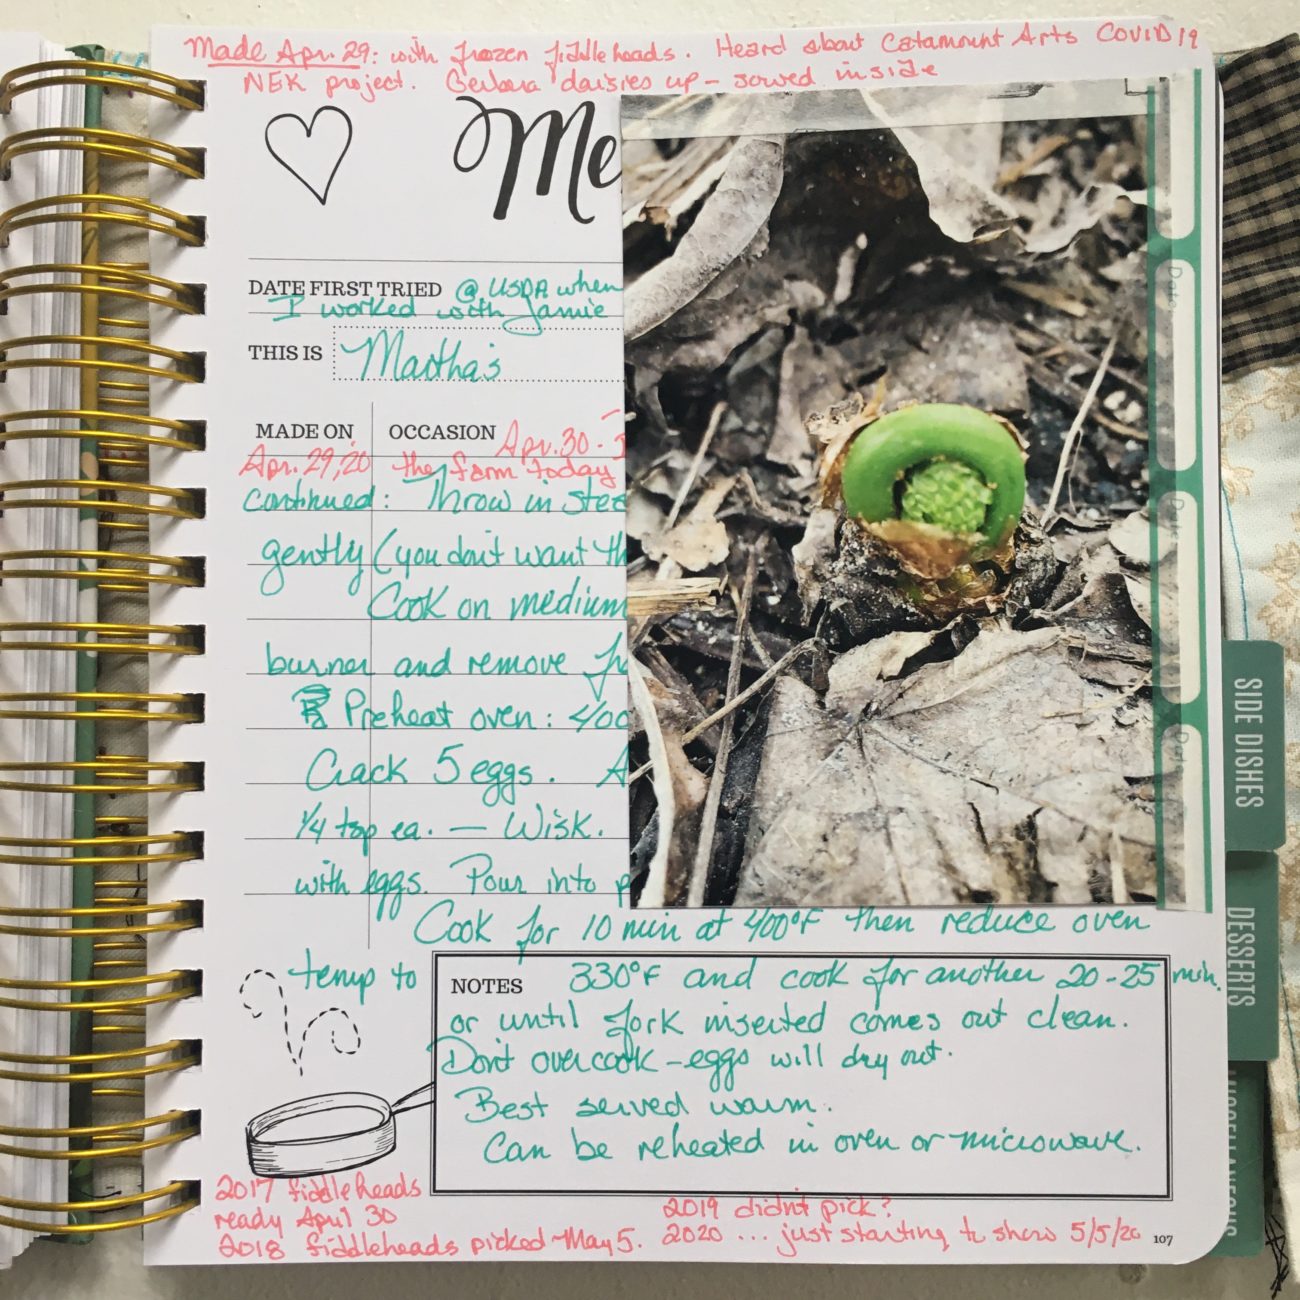 Made Apr. 29: with frozen fiddleheads. Heard about Catamount Arts COVID 19
NEK project. Gerbera daisies up – sowed inside
Me
DATE FIRST TRIED @ USDA when
I worked with Jamie
THIS IS Martha's
MADE ON OCCASION Apr. 30 -
Apr. 29, 20 the farm today
continued: Throw in
gently (you don't want
Cook on medium
burner and remove
Preheat oven: 400
Crack 5 eggs.
1/4 tsp ea. — Wisk.
with eggs. Pour into
Cook for 10 min at 400°F then reduce oven
temp to 330°F and cook for another 20-25 min.
NOTES
or until fork inserted comes out clean.
Don't overcook – eggs will dry out.
Best served warm.
Can be reheated in oven or microwave.
2017 fiddleheads
ready April 30
2018 fiddleheads picked May 5.
2019 didn't pick?
2020 ... just starting to show 5/5/20
107
SIDE DISHES
DESSERTS
MISCELLANEOUS
Date
Date